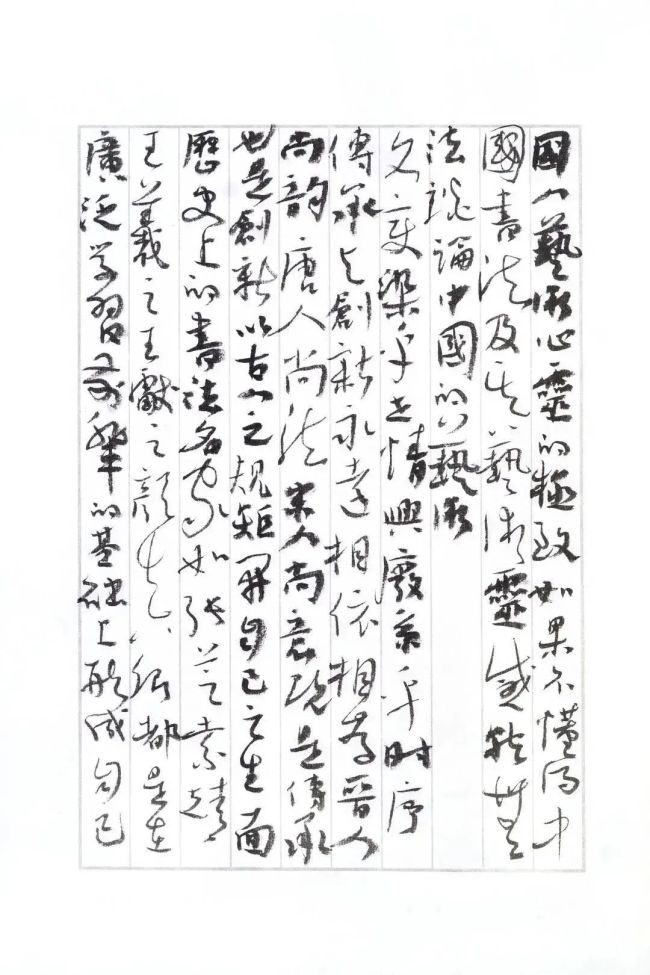 國人藝術心靈的極致如果不懂得中
國書法及其藝術靈感就無
法談論中國的藝術
文變染乎世情興廢系乎时序
傳承与創新永遠相依相晋人
尚韵唐人尚法宋人尚意既是傳承
也是創新以古人之規矩開自己之生面
歷史上的書法名家如張芝索靖
王羲之王獻之顏真卿都是在
廣泛学習前輩的基础上形成自己